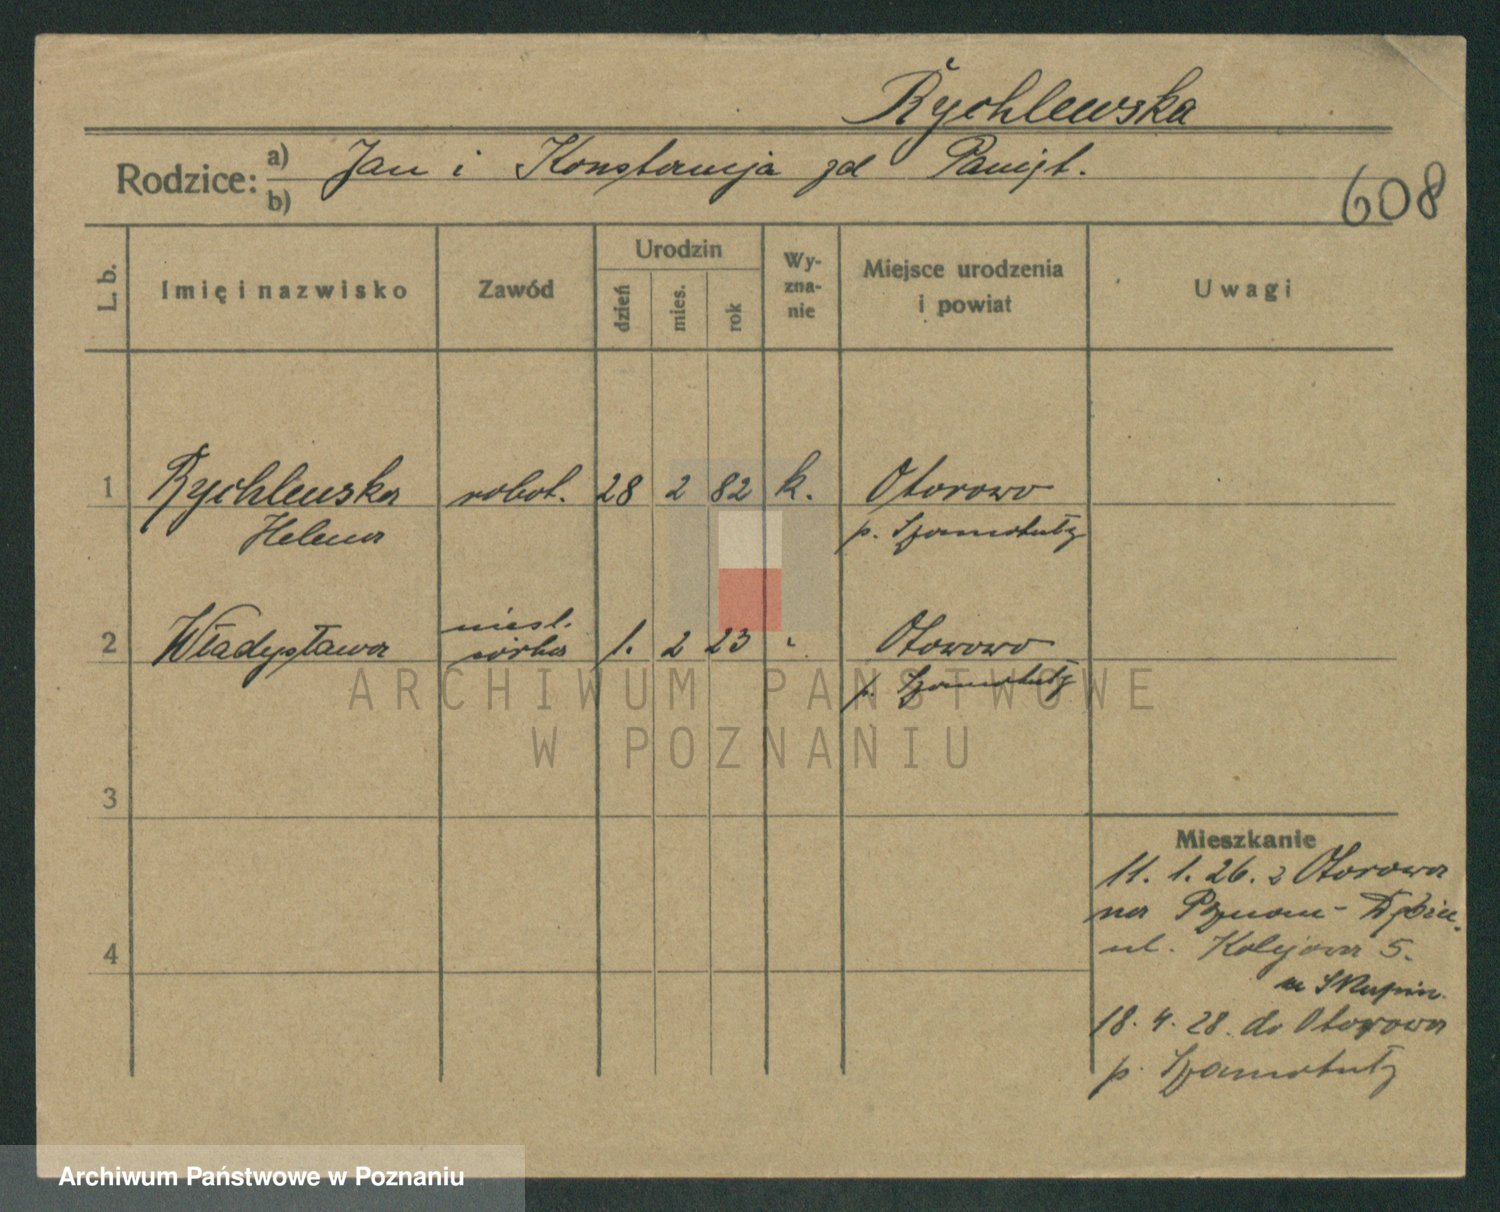 Rychlewska
Rodzice: a) Jan i Konstancja zd
b)
608
L. b.
Imię i nazwisko
Zawód
Urodzin
dzień
mies.
rok
Wy-
zna-
nie
Miejsce urodzenia
i powiat
Uwagi
1 Rychlewska robot. 28 2 82 k. Otorowo
Helena p. Szamotuły
2 Władysława niesl. córka 1. 2 23 " Otorowo
p. Szamotuły
3
4
Mieszkanie
11. 1. 26. z Otorowa
na Poznań-
ul. Kolejowa 5.
u
18. 4. 28. do Otorowa
p. Szamotuły
ARCHIWUM PAŃSTWOWE
W POZNANIU
Archiwum Państwowe w Poznaniu